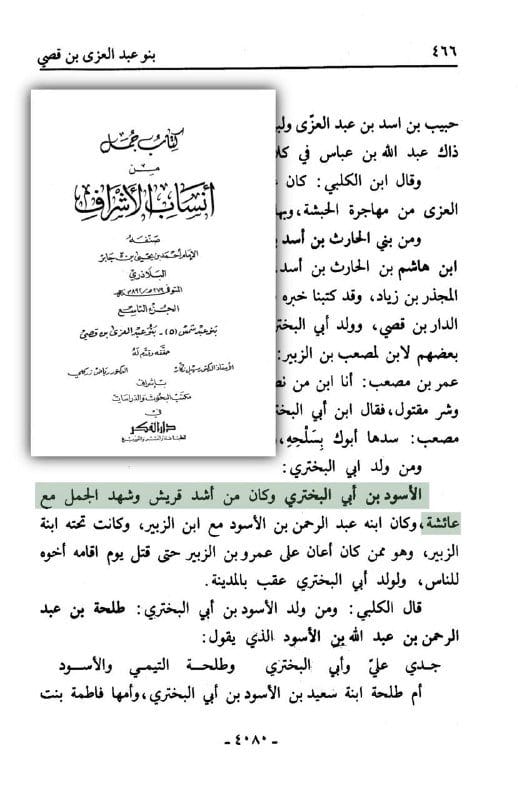 ٤٦٦
بنو عبد العزى بن قصي
حبيب بن اسد بن عبد العزّى
ذاك عبد الله بن عباس في
وقال ابن الكلبي: كان
العزى من مهاجرة الحبشة،
ومن بني الحارث بن أسد
ابن هاشم بن الحارث بن أسد
المجذر بن زياد، وقد كتبنا خبره
الدار بن قصي، وولد أبي
بعضهم لابن لمصعب بن الزبير:
عمر بن مصعب: أنا ابن من
وشر مقتول، فقال ابن أبي
مصعب: سدها أبوك بِسَلْحِهِ،
ومن ولد ابي البختري:
الأسود بن أبي البختري وكان من أشد قريش وشهد الجمل مع
عائشة، وكان ابنه عبد الرحمن بن الأسود مع ابن الزبير، وكانت تحته ابنة
الزبير، وهو ممن كان أعان على عمرو بن الزبير حتى قتل يوم اقامه أخوه
للناس، ولولد أبي البختري عقب بالمدينة.
قال الكلبي: ومن ولد الأسود بن أبي البختري: طلحة بن عبد
الرحمن بن عبد الله بن الأسود الذي يقول:
جدي عليّ وأبي البختري وطلحة التيمي والأسود
أم طلحة ابنة سعيد بن الأسود بن أبي البختري، وأمها فاطمة بنت
- ٤٠٨٠ -
كتاب جمل
من
أنساب الأشراف
صنفه
الإمام أحمد بن يحيى بن جابر
البلاذري
المتوفى ٢٧٩هـ / ٨٩٢م
الجزء التاسع
بنو عبد شمس (٥) - بنو عبد العزى بن قصي
حققه وقدم له
الأستاذ الدكتور سهيل زكار
الدكتور رياض زركلي
بإشراف
مكتب البحوث والدراسات
في
دار الفكر
للطباعة والنشر والتوزيع